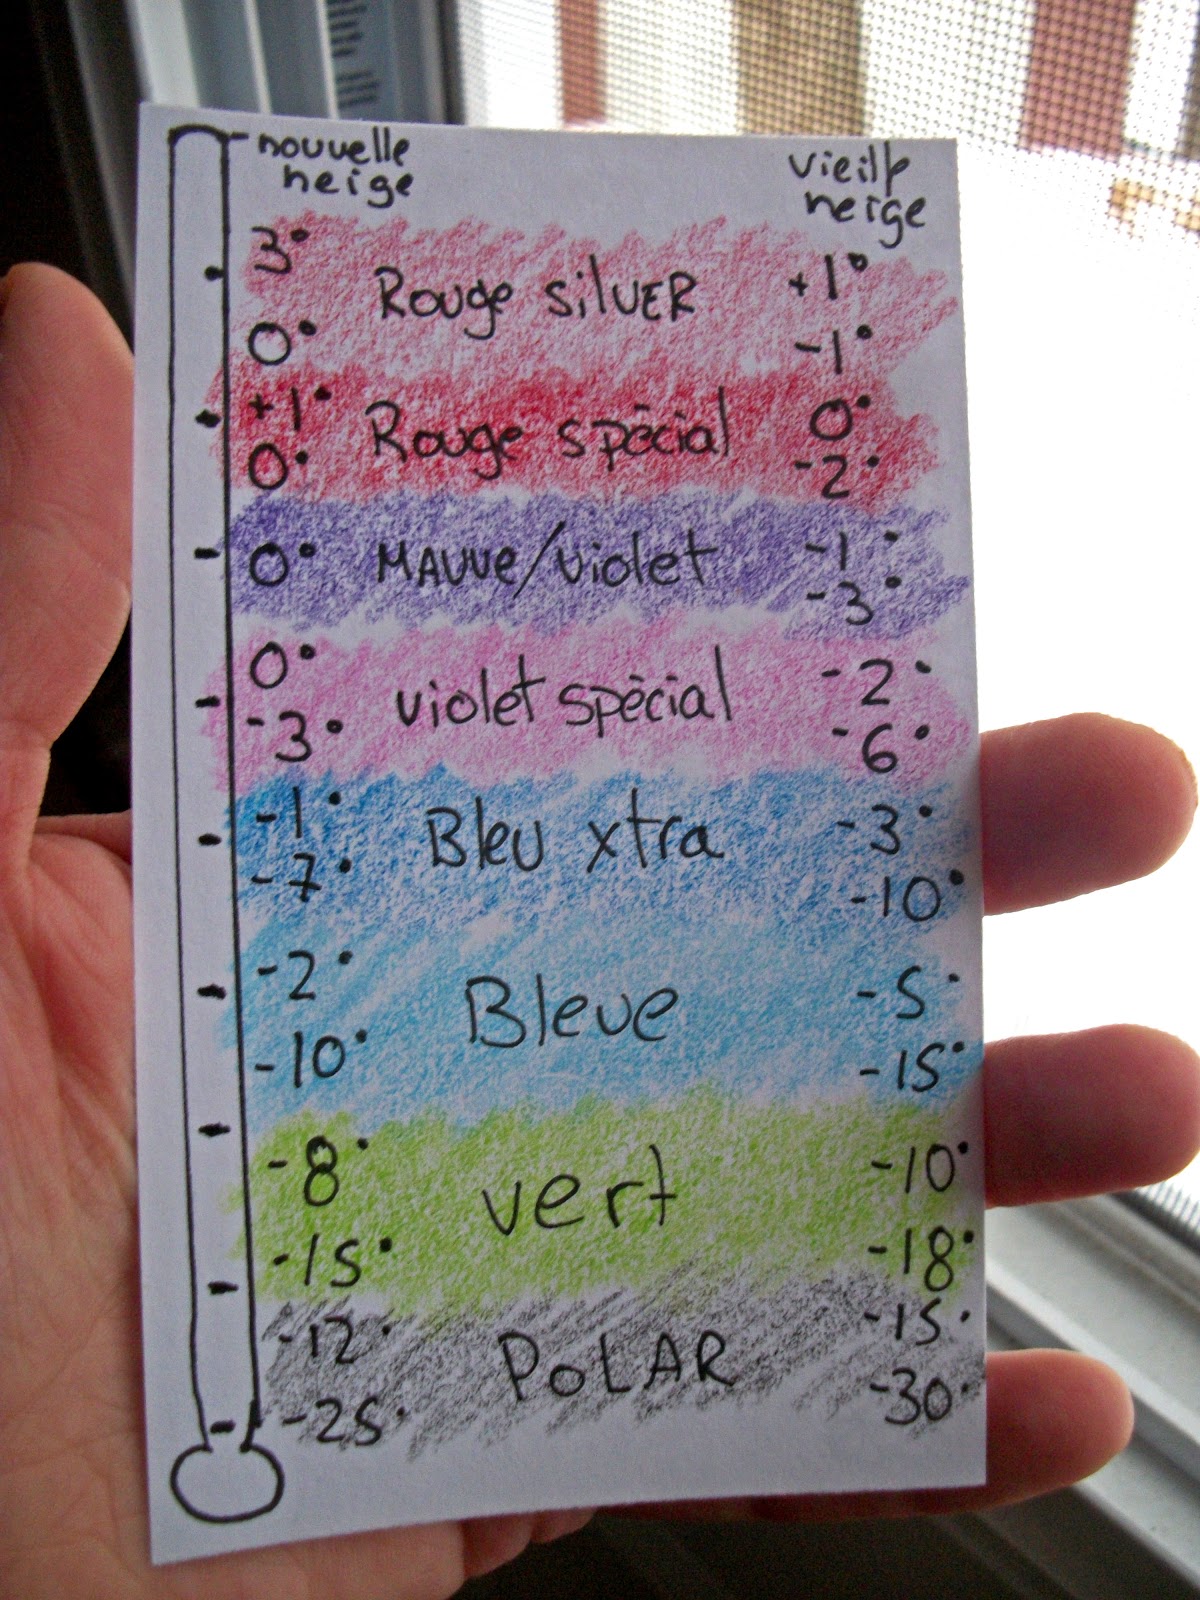 nouvelle neige
vieille neige
3° Rouge SilVER +1°
0° -1°
+1° Rouge spècial 0°
0° -2°
0° MAUVE/violet -1°
-3°
0° violet spècial -2°
-3° -6°
-1° Bleu xtra -3°
-7° -10°
-2° Bleue -5°
-10° -15°
-8° vert -10°
-15° -18°
-12° POLAR -15°
-25° -30°